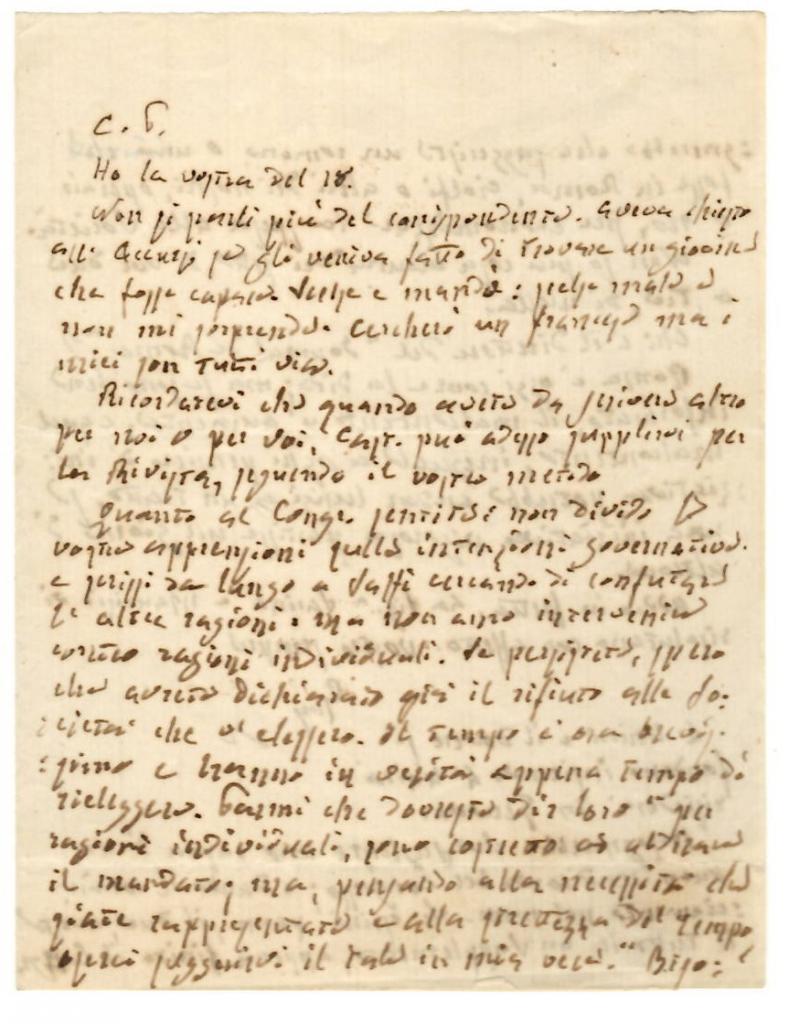 C. F.
Ho la vostra del 18.
Non si parli più del corrispondente. Aveva chiesto
all' se gli veniva fatto di trovare un giovine
che fosse capace. Scelse e mandò: scelse male e
non mi sorprende. Cercherò un francese ma i
miei son tutti via.
Ricordatevi che quando avete da scrivere altro
per noi o per voi, può adesso supplirvi per
la Rivista, seguendo il vostro metodo
Quanto al Congr. sentite: non divido le
vostre apprensioni sulle intenzioni governative.
e scrissi da lungo a Saffi cercando di confutare
le altre ragioni: ma non amo intervenire
contro ragioni individuali. Se persistete, spero
che avrete dichiarato già il rifiuto alle So-
cietà che v'elessero. Il tempo è ora brevis-
simo e hanno in verità appena tempo di
rieleggere. Parmi che dovreste dir loro "per
ragioni individuali, sono costretto ad
il mandato; ma, pensando alla necessità che
siate rappresentate e alla strettezza del tempo
suggerirvi il tale in mia vece." Biso-